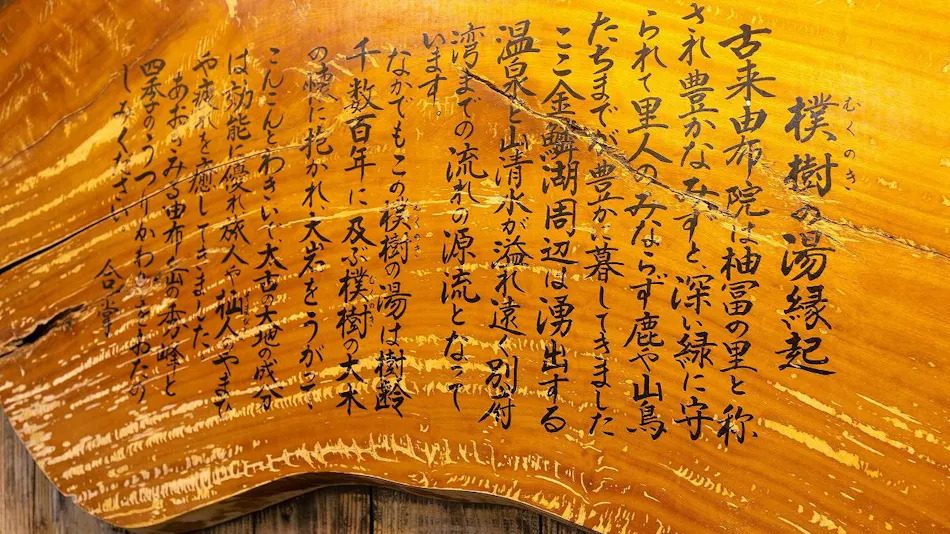 樸樹の湯縁起
むくのき
古来由布院は柚冨の里と称
され豊かなみずと深い緑に守
られて里人のみならず鹿や山鳥
たちまでが豊かに暮してきました
ここ金鱗湖周辺は湧出する
温泉と山清水が溢れ遠く別府
湾までの流れの源流となって
います。
なかでもこの樸樹の湯は樹齢
千数百年に及ぶ樸樹の大木
の懐に抱かれ大岩をうがって
こんこんとわきいで太古の大地の成分
は効能に優れ旅人や仙人のやまひ
や疲れを癒してきました。
あおぎみる由布山の本が峰と
四季のうつりかわりをおたの
しみください
合掌